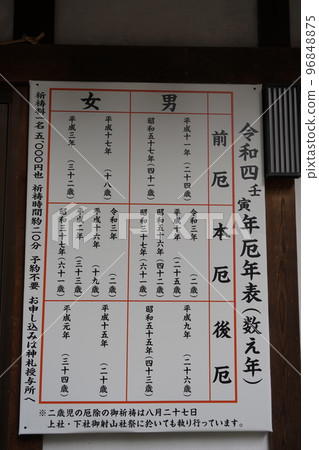 令和四壬寅年厄年表(数え年)
前厄
本厄
後厄
男
平成十一年 (二十四歳)
昭和五十七年(四十一歳)
令和三年 (二歳)
平成十年 (二十五歳)
昭和五十六年(四十二歳)
昭和三十七年(六十一歳)
平成九年 (二十六歳)
昭和五十五年(四十三歳)
女
平成十七年 (十八歳)
平成三年 (三十二歳)
令和三年 (二歳)
平成十六年 (十九歳)
平成二年 (三十三歳)
昭和三十七年(六十一歳)
平成十五年 (二十歳)
平成元年 (三十四歳)
祈祷料一名 五,〇〇〇円也 祈祷時間約二〇分 予約不要 お申し込みは神札授与所へ
※二歳児の厄除の御祈祷は八月二十七日
上社・下社御射山社祭に於いても執り行っています。
PIXTA
96848875